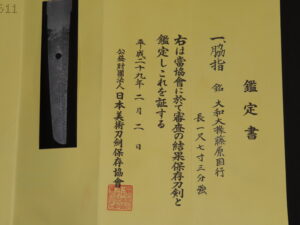 鑑定書
一、脇指 銘 大和大掾藤原国行
長一尺七寸三分強
右は當協會に於て審査の結果保存刀剣と
鑑定しこれを証する
平成二十九年二月二日
公益財團法人日本美術刀剣保存協會
611